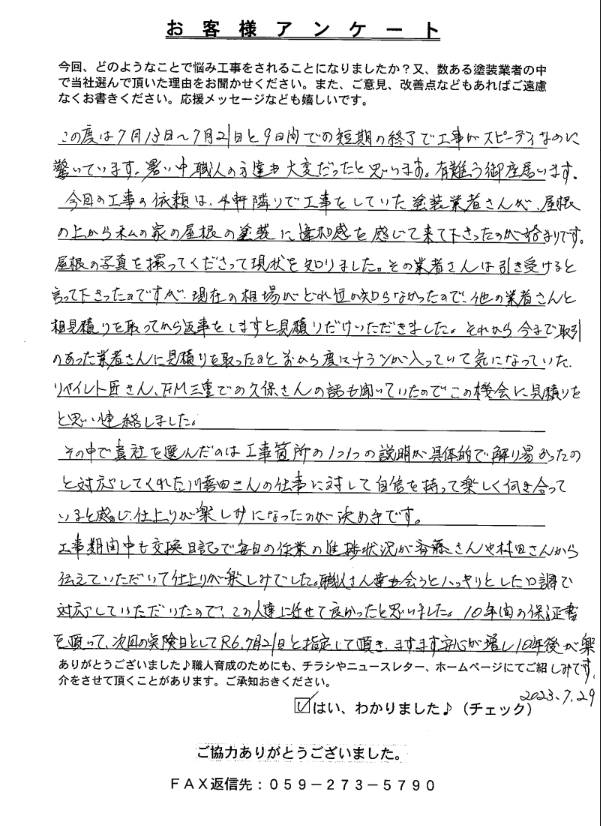 お客様アンケート
今回、どのようなことで悩み工事をされることになりましたか？又、数ある塗装業者の中
で当社選んで頂いた理由をお聞かせください。また、ご意見、改善点などもあればご遠慮
なくお書きください。応援メッセージなども嬉しいです。
この度は7月13日〜7月21日と9日間での短期の終了で工事がスピーディなのに
驚いています。暑い中職人の方達も大変だったと思います。有難う御座居います。
今回の工事の依頼は、4軒隣りで工事をしていた塗装業者さんが、屋根
の上から私の家の屋根の塗装に違和感を感じて来て下さったのが始まりです。
屋根の写真を撮ってくださって現状を知りました。その業者さんは引き受けると
言って下さったのですが、現在の相場がどれ位か知らなかったので、他の業者さんと
相見積りを取ってから返事をしますと見積りだけいただきました。それから今まで取引
のあった業者さんに見積りを取ったあと前から度にチラシが入っていて気になっていた
リペイント匠さん、FM三重での久保さんの話も聞いていたのでこの機会に見積りを
と思い連絡しました。
その中で貴社を選んだのは工事箇所の1つ1つの説明が具体的で解り易かったの
と対応してくれた川喜田さんの仕事に対して自信を持って楽しく向き合って
いると感じ仕上りが楽しみになったのが決め手です。
工事期間中も交換日記で毎日の作業の進捗状況が斉藤さんや村田さんから
伝えていただいて仕上りが楽しみでした。職人さん達も会うとハッキリとした口調で
対応していただいたので、この人達に任せて良かったと思いました。10年間の保証書
を頂って、次回の実険日としてR6.7月21日と指定して頂き、ますます安心が増し10年後が楽
しみです。
ありがとうございました♪職人育成のためにも、チラシやニュースレター、ホームページにてご紹
介をさせて頂くことがあります。ご承知おきください。
2023.7.29
☑はい、わかりました♪（チェック）
ご協力ありがとうございました。
ＦＡＸ返信先：０５９－２７３－５７９０